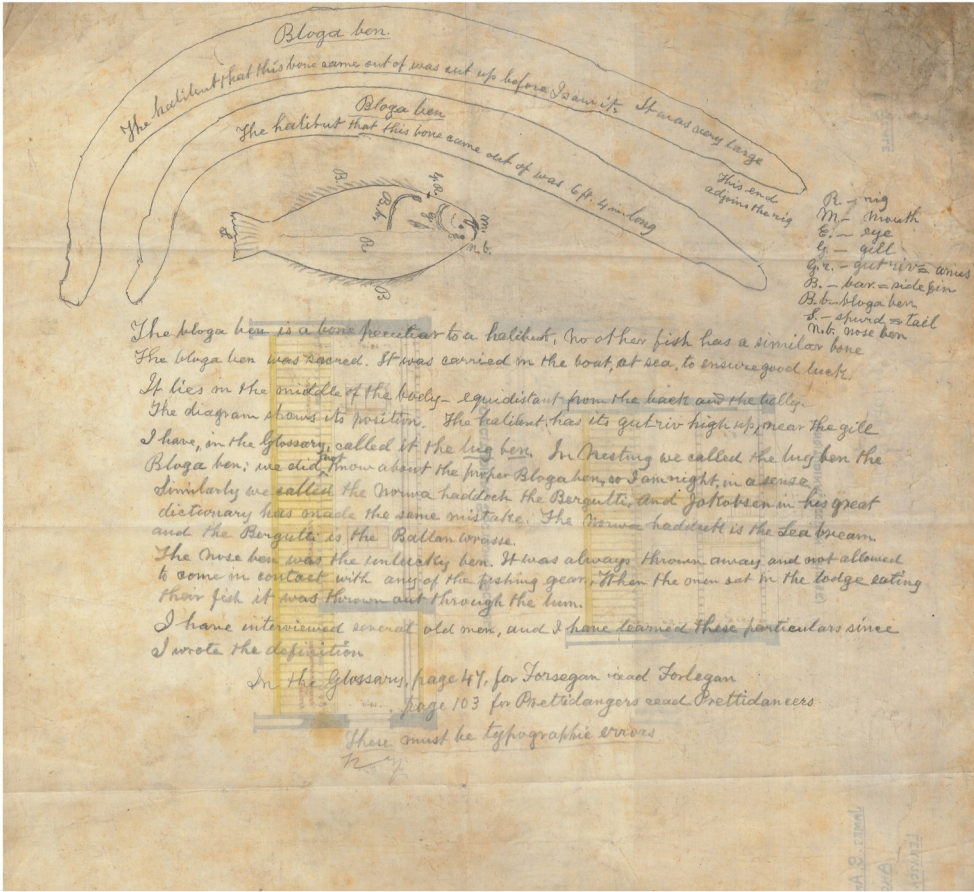 Bloga ben.
The halibut that this bone came out of was cut up before I saw it. It was very large
Bloga ben
The halibut that this bone came out of was 6ft. 4 in long
This end
adjoins the rig
R. – rig
M – Mouth
E. – eye
G – gill
G.r. – gut riv =
B. – bar. = side fin
B.b – bloga ben
S. – spurd = tail
n.b. nose ben
B.
G.R.
B.b.
R
M.
n.b.
S
B
The bloga ben is a bone peculiar to a halibut, No other fish has a similar bone
The bloga ben was sacred. It was carried in the boat, at sea, to ensure good luck.
It lies in the middle of the body – equidistant from the back and the belly.
The diagram shows its position. The halibut has its gut riv high up, near the gill
I have, in the Glossary, called it the lug ben. In Nesting we called the lug ben the
Bloga ben; we did not know about the proper Bloga ben, so I am right, in a sense.
Similarly we called the Norwa haddock the Bergulti, and Jakobsen in his great
dictionary has made the same mistake. The Norwa haddock is the Sea bream
and the Bergulti is the Ballan Wrasse.
The nose ben was the unlucky ben. It was always thrown away and not allowed
to come in contact with any of the fishing gear. When the men sat in the lodge eating
their fish it was thrown out through the lum.
I have interviewed several old men, and I have learned these particulars since
I wrote the definition
In the Glossary, page 47, for Forsegan read Forlegan
page 103 for Prettidangers read Prettidancers
These must be typographic errors